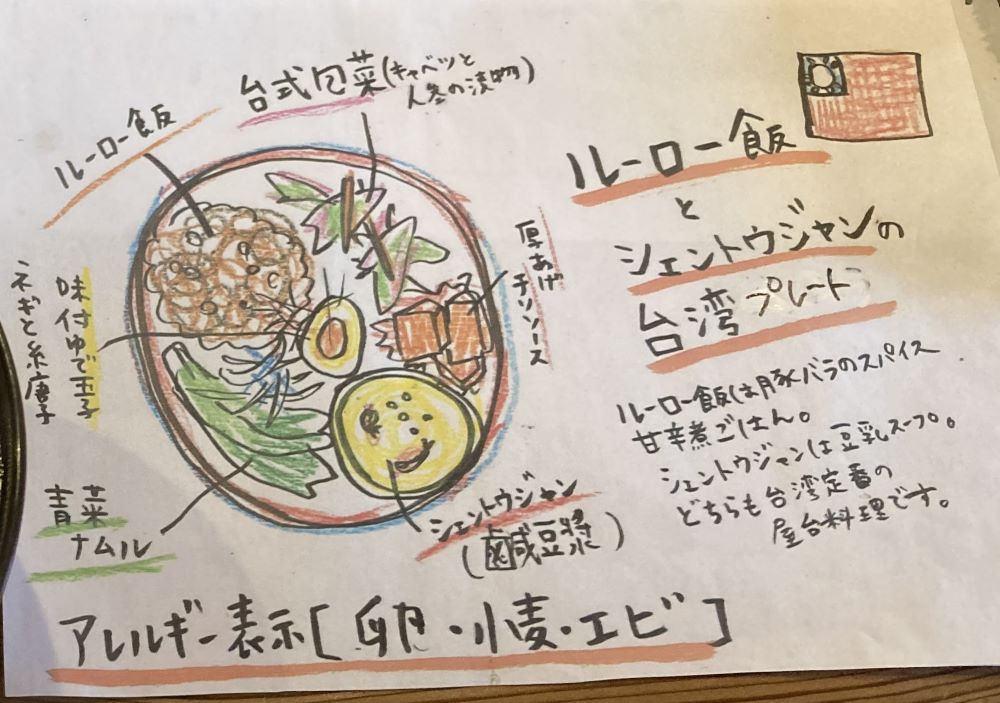 ルーロー飯
台式包菜(キャベツと
人参の漬物)
ルーロー飯
と
シェントウジャンの
台湾プレート
厚あげ
チリソース
味付ゆで玉子
ネギと糸唐子
青菜
ナムル
シェントウジャン
(鹹豆漿)
ルーロー飯は豚バラのスパイス
甘辛煮ごはん。
シェントウジャンは豆乳スープ。
どちらも台湾定番の
屋台料理です。
アレルギー表示[卵・小麦・エビ]